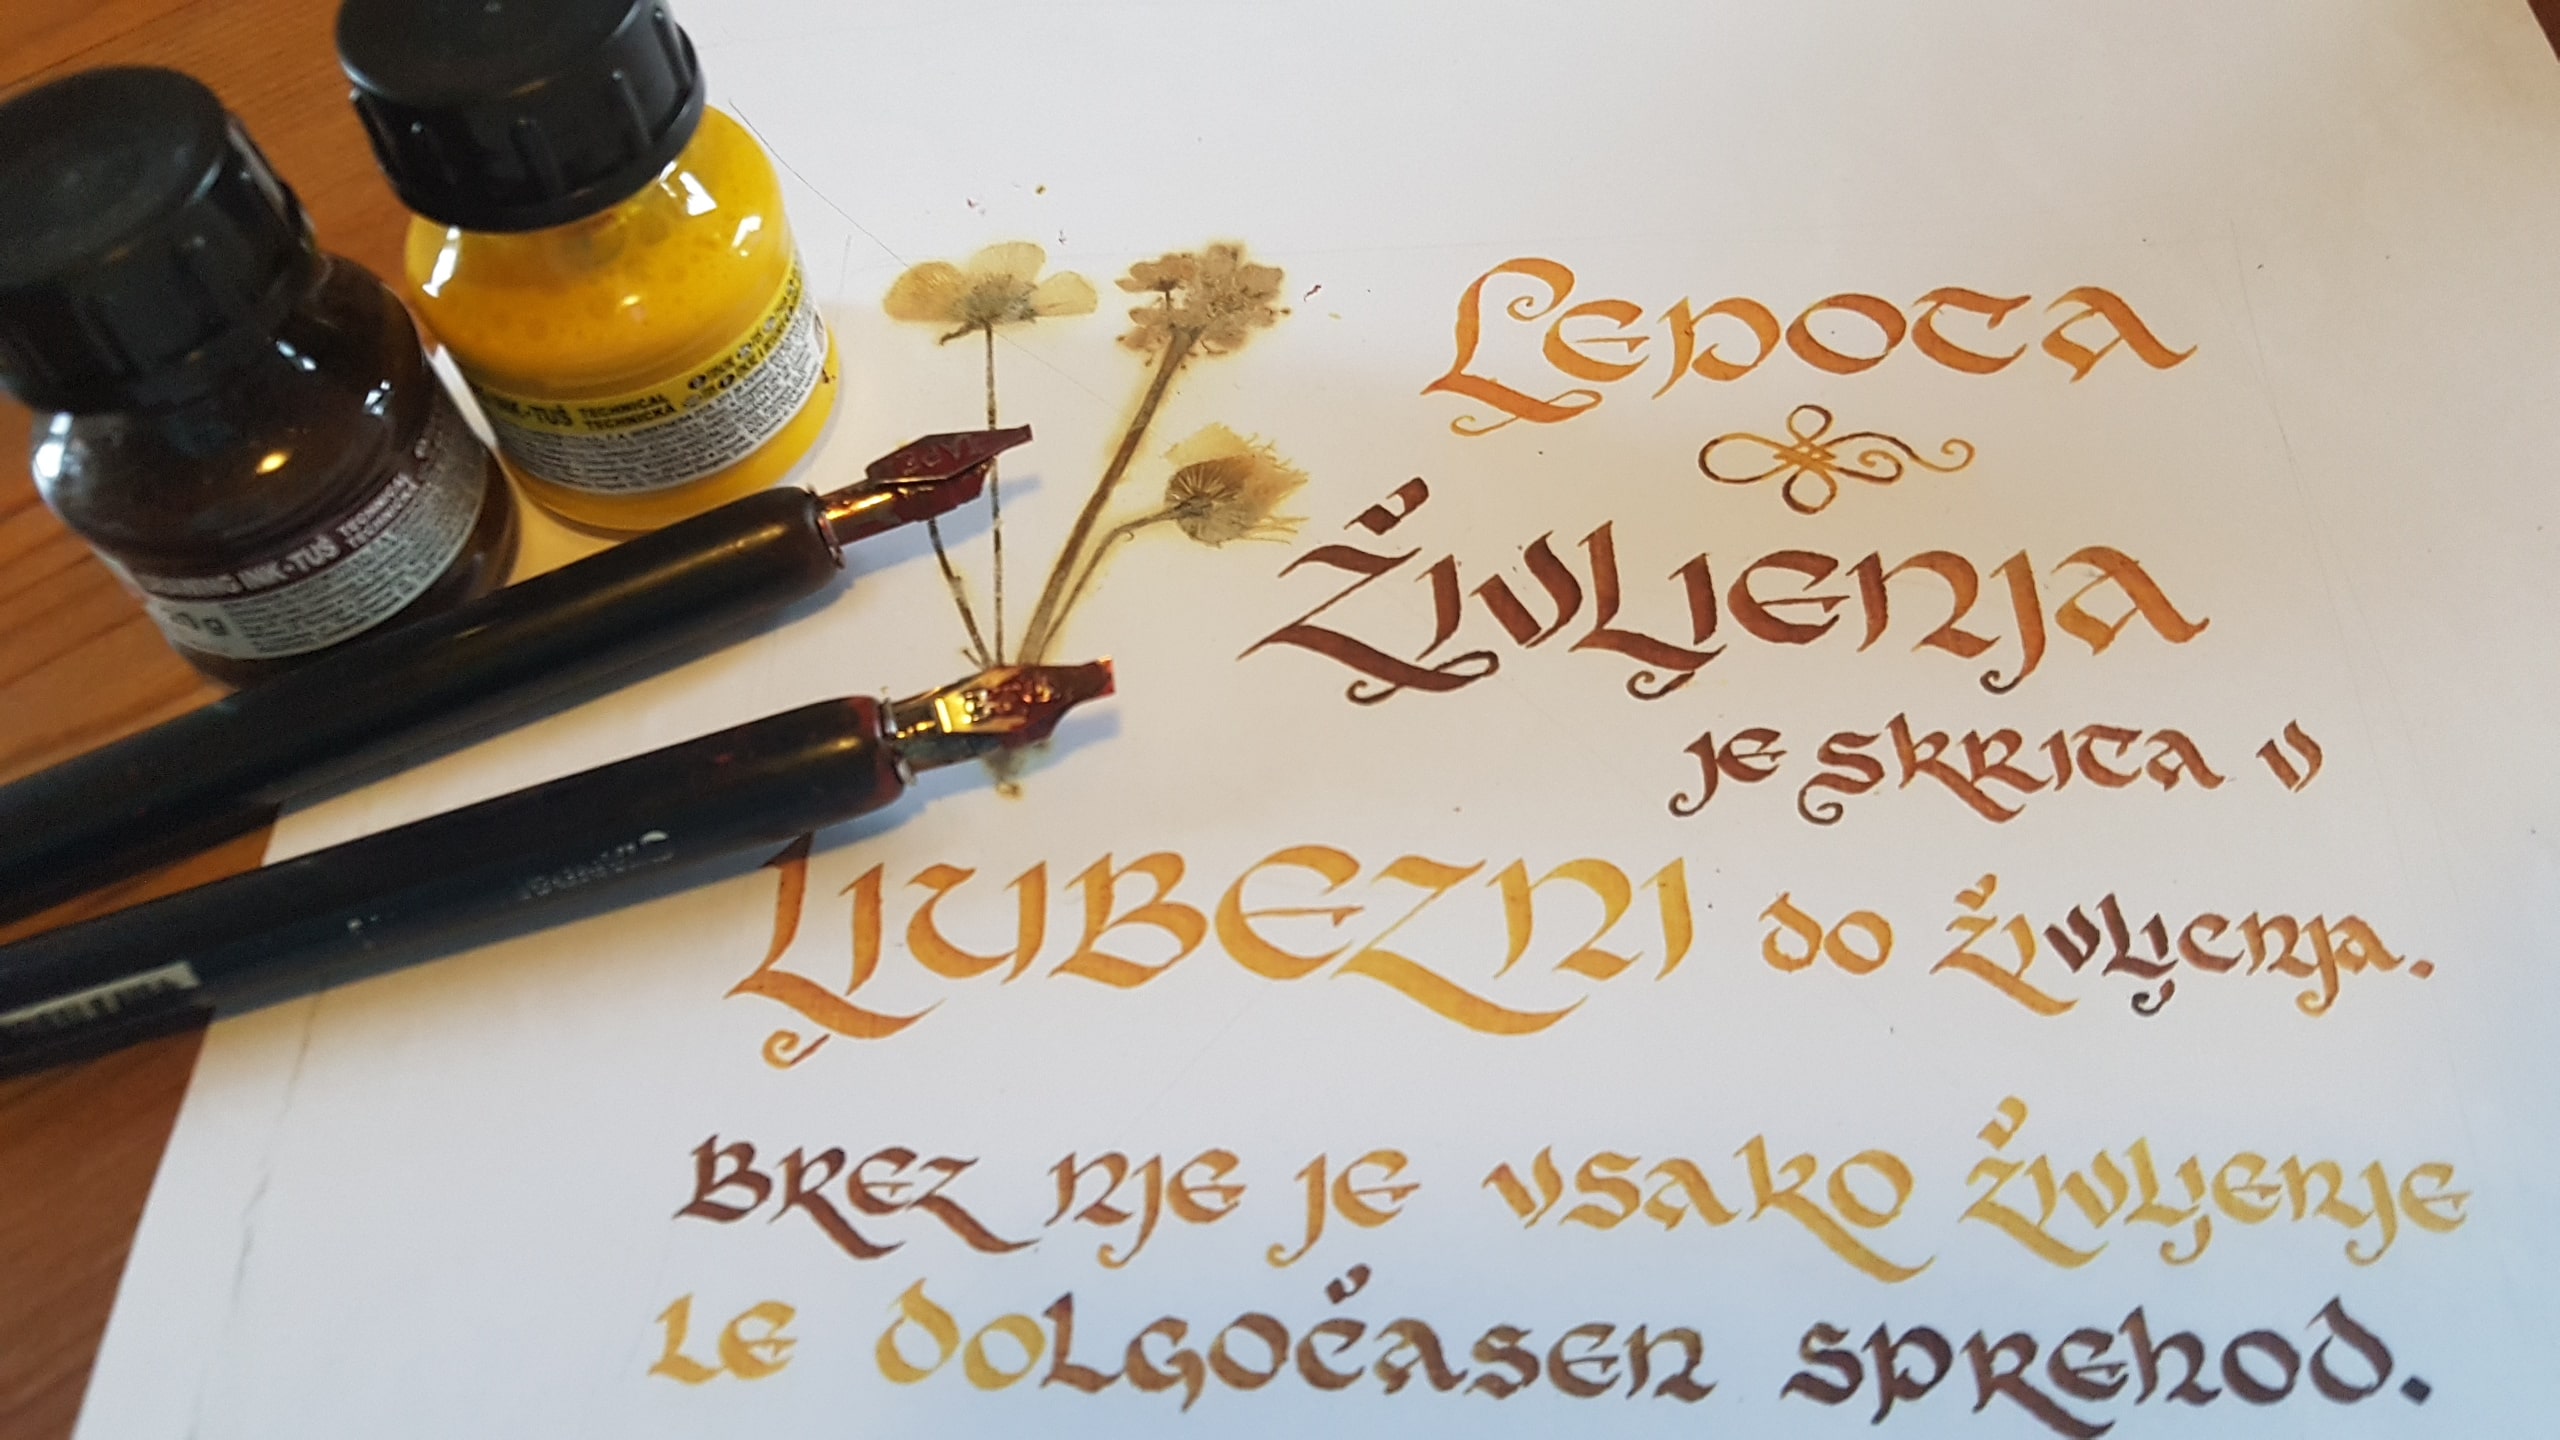 INK-TUŠ TECHNICAL
TECHNICKÁ
INK-TUŠ TECHNICAL
Lepota
Življenja
je skrita v
Ljubezni do življenja.
Brez nje je vsako življenje
le dolgočasen sprehod.